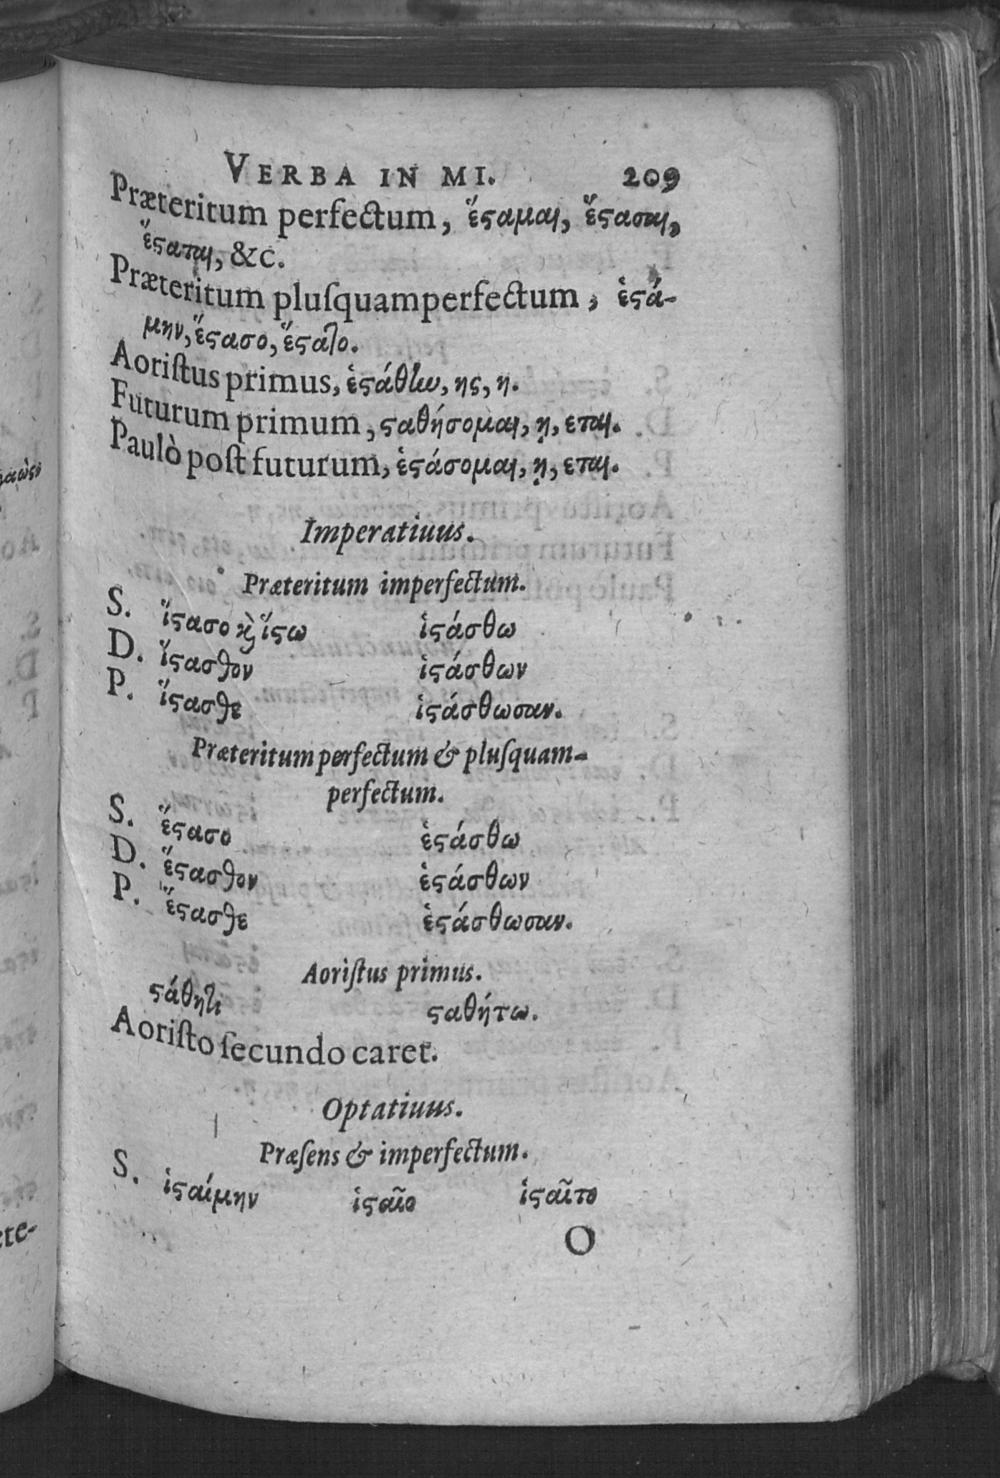 VERBA IN MI. 209
Præteritum perfectum, ἕϛαμαι, ἕϛασαι,
ἕϛαται, &c.
Præteritum pluſquamperfectum, ἑϛά-
μην, ἕϛασο, ἕϛατο.
Aoriſtus primus, ἐϛάθην, ης, η.
Futurum primum, ϛαθήσομαι, ῃ, εται.
Paulò poſt futurum, ἑϛάσομαι, ῃ, εται.
Imperatiuus.
Præteritum imperfectum.
S. ἵϛασο ϗ ἵϛω ἱϛάσθω
D. ἵϛασθον ἱϛάσθων
P. ἵϛασθε ἱϛάσθωσαν.
Præteritum perfectum & pluſquam-
perfectum.
S. ἕϛασο ἑϛάσθω
D. ἕϛασθον ἑϛάσθων
P. ἕϛασθε ἑϛάσθωσαν.
Aoriſtus primus.
ϛάθητι ϛαθήτω.
Aoriſto ſecundo caret.
Optatiuus.
Præſens & imperfectum.
S. ἱϛαίμην ἱϛαῖο ἱϛαῖτο
O